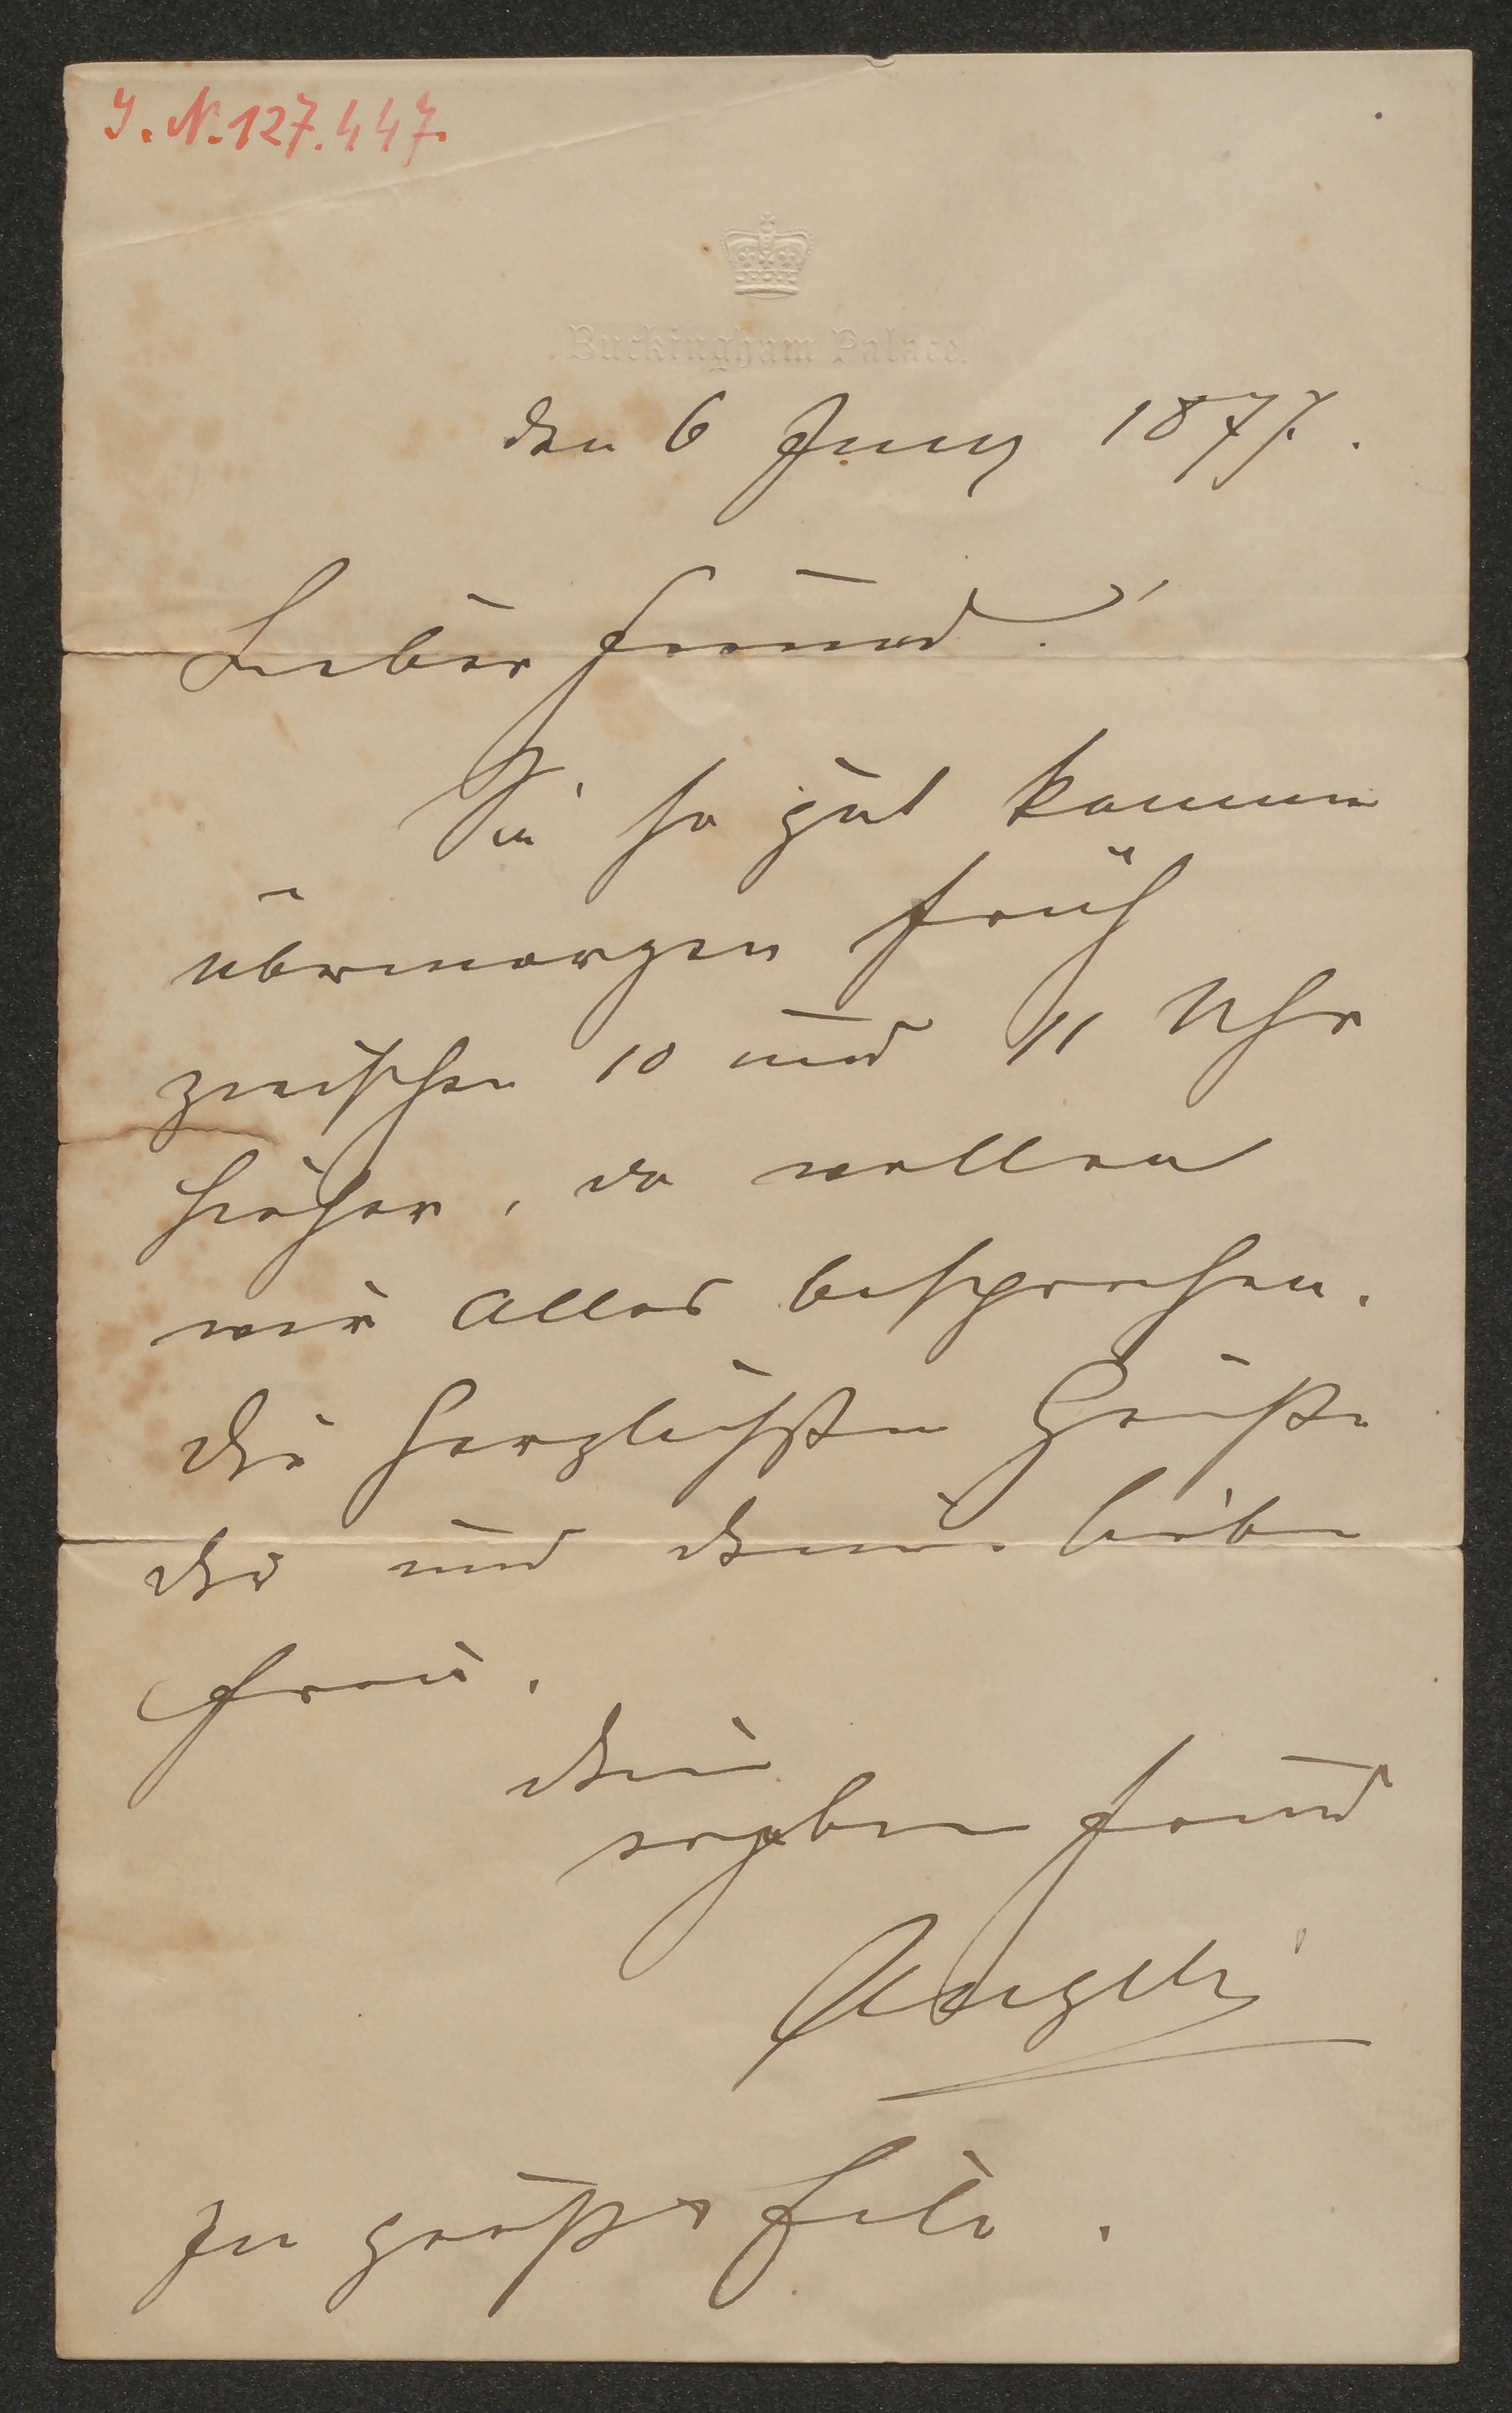 J. N. 127.447.
Buckingham Palace.
den 6 Juny 1877.
Lieber Freund!
Sei so gut komme
übermorgen früh
zwischen 10 und 11 Uhr
hieher, da wollen
wir Alles besprechen.
Die herzlichsten Grüße
Dir und Deiner lieben
Frau.
Dein
ergebener Freund
Angeli
In größter Eile.